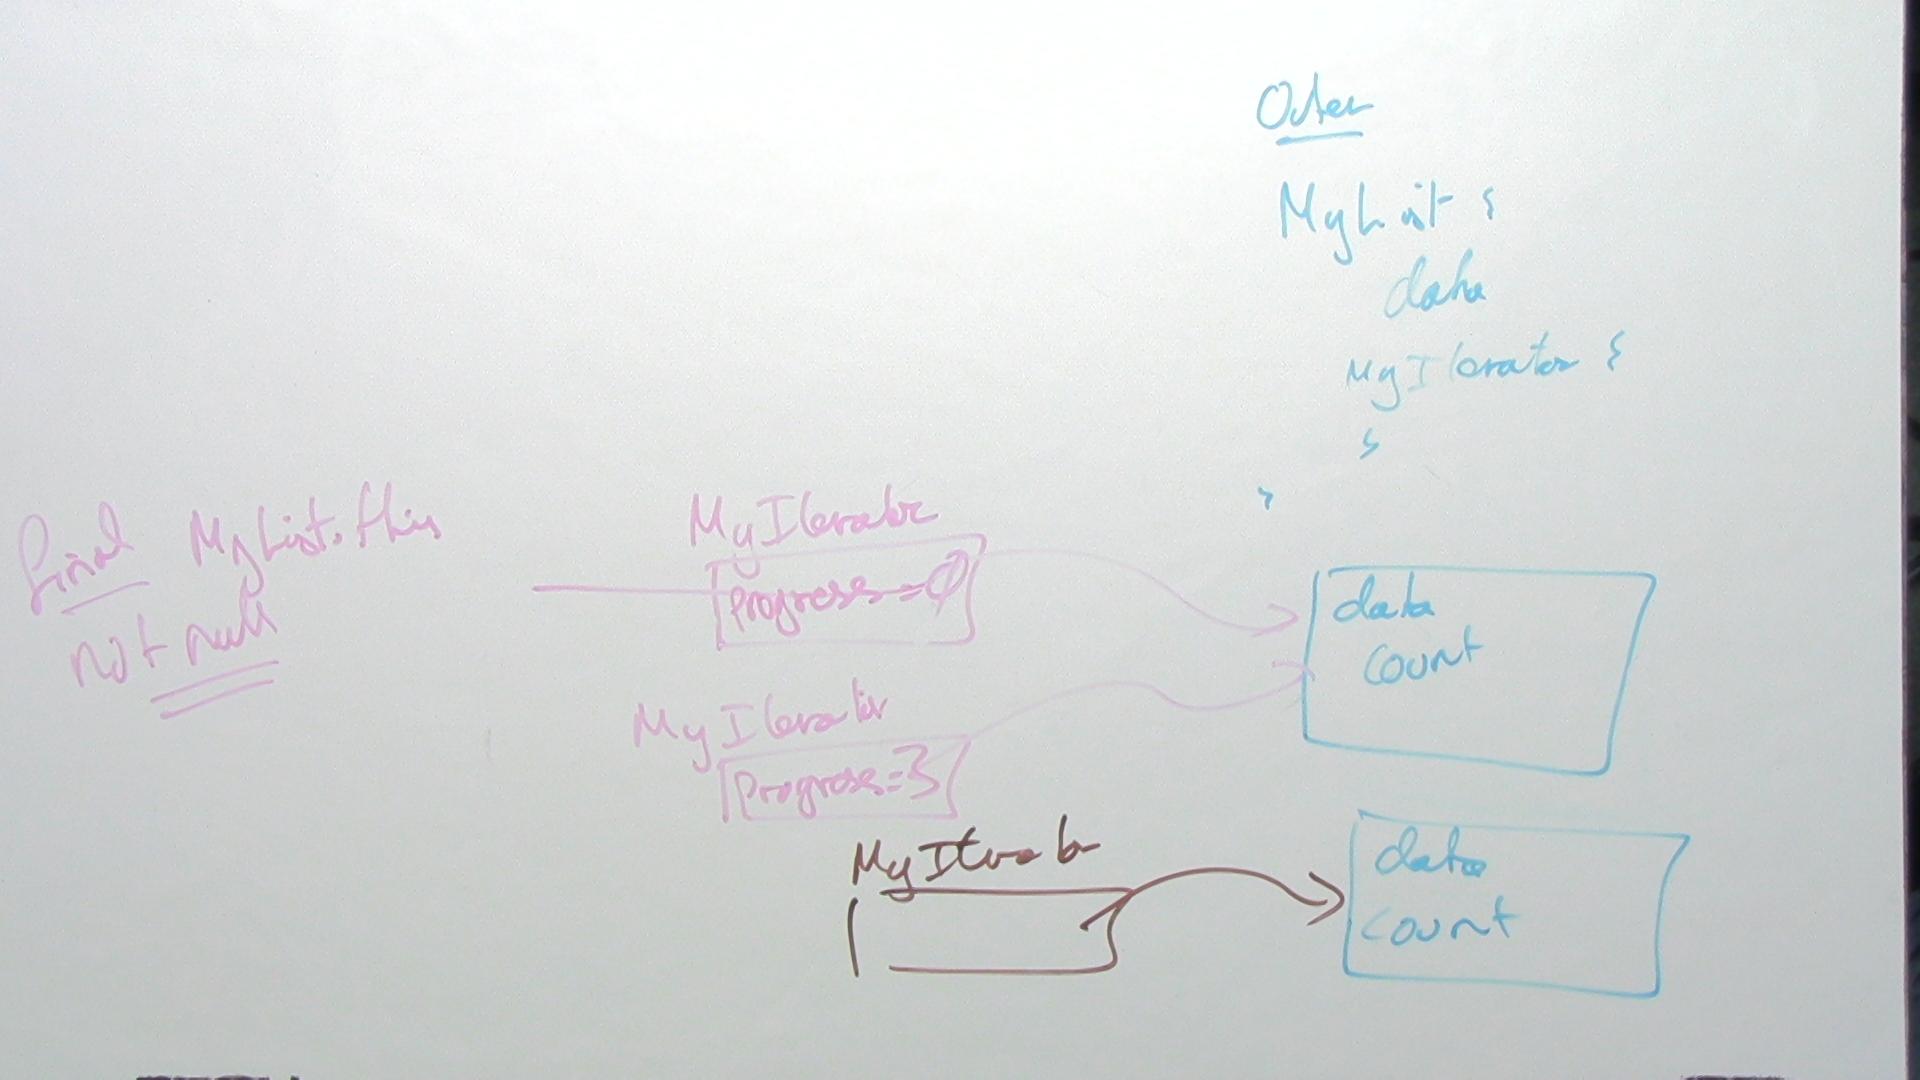 Outer
MyList {
data
MyIterator {
}
}
final MyList.this
not null
MyIterator
progress=0
MyIterator
progress=3
MyIterator
data
count
data
count